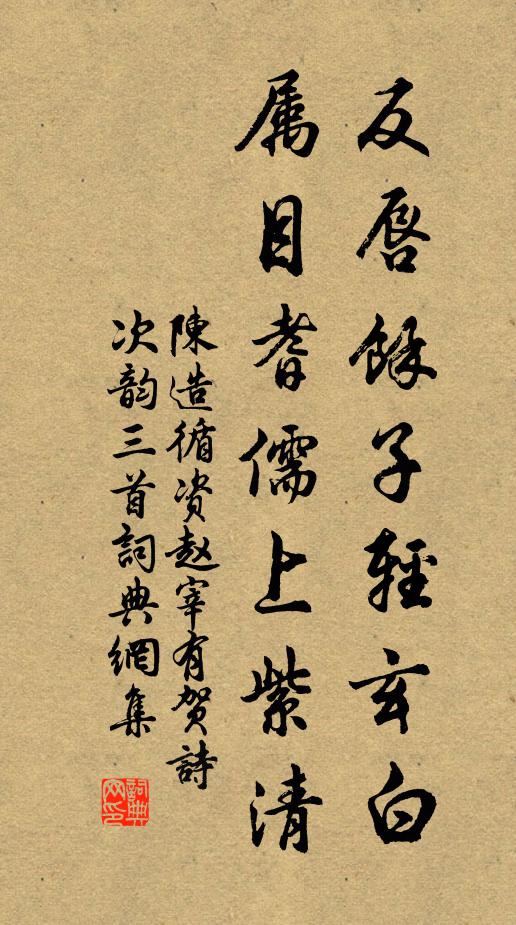 反唇餘子輕玄白
属目耆儒上紫清
陳造循资赵宰有贺詩
次韵三首詞典網集
詞典
网印